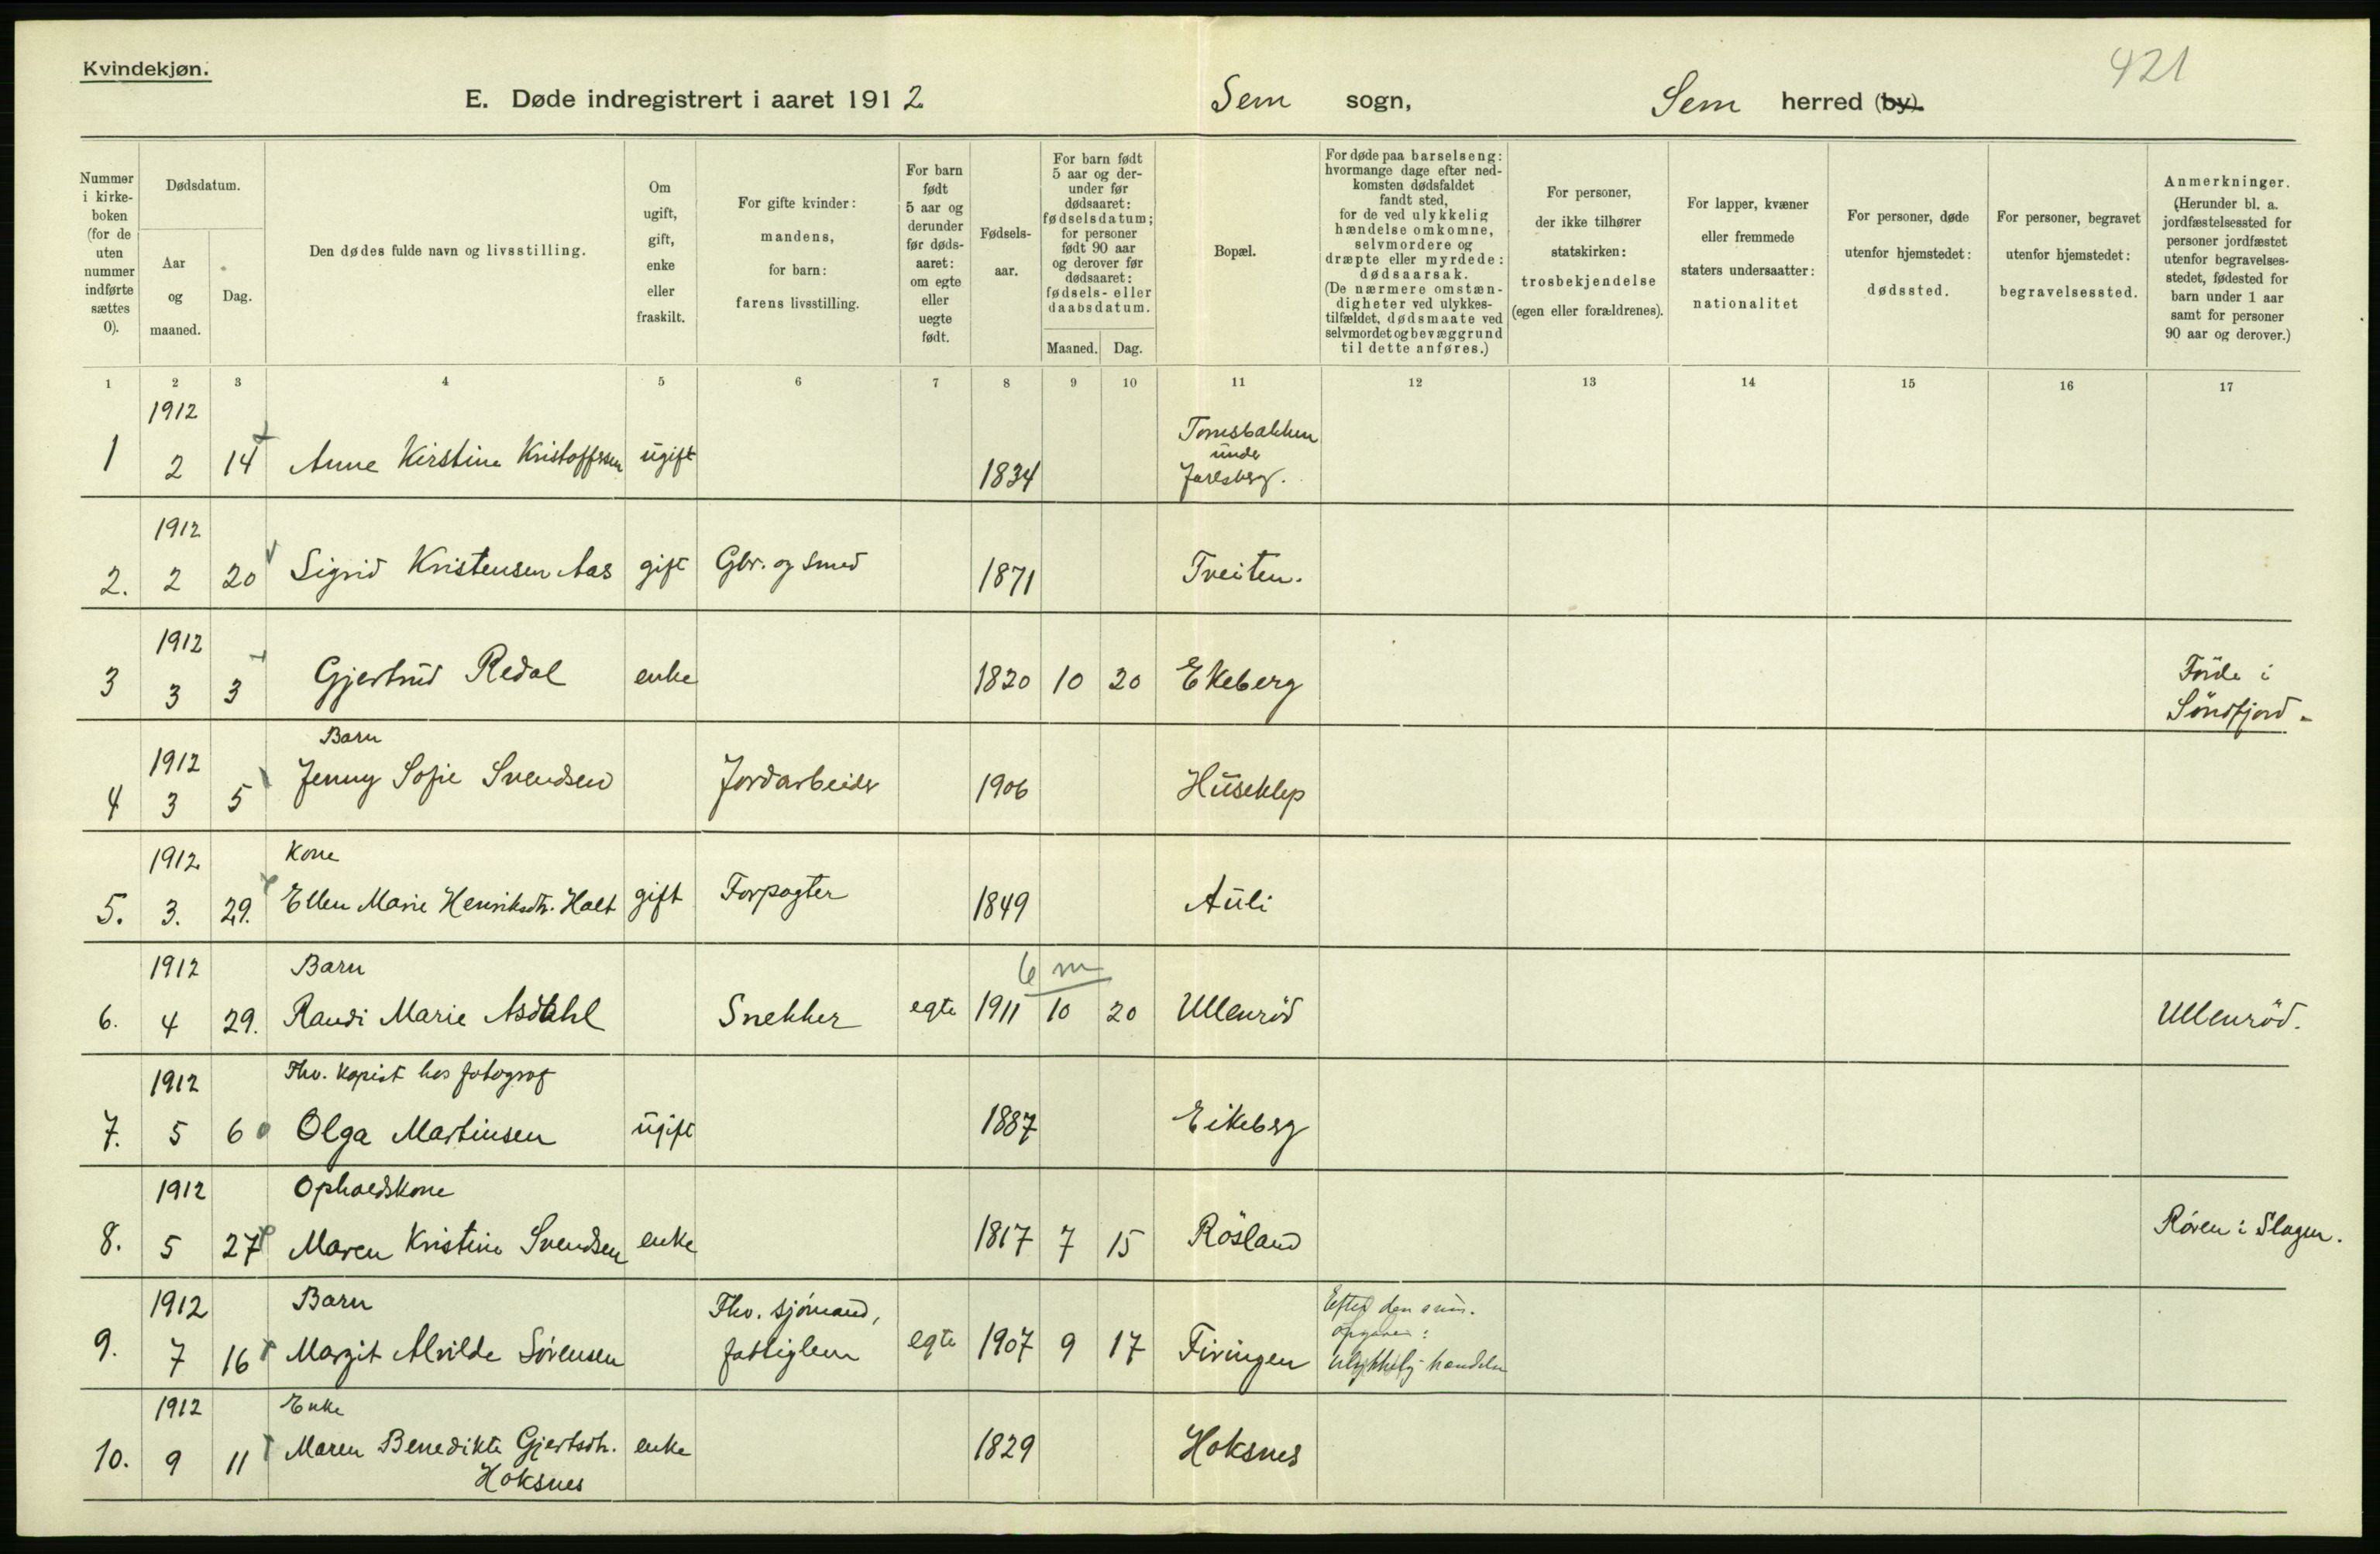 Kvindekjøn.
421
E. Døde indregistrert i aaret 1912
Sem sogn,
Sem herred (by).
Nummer i kirke- boken (for de uten nummer indførte sættes 0).
Dødsdatum.
Aar og maaned.
Dag.
Den dødes fulde navn og livsstilling.
Om ugift, gift, enke eller fraskilt.
For gifte kvinder: mandens, for barn: farens livsstilling.
For barn født 5 aar og derunder før døds- aaret: om egte eller uegte født.
Fødsels- aar.
For barn født 5 aar og der- under før dødsaaret: fødselsdatum; for personer født 90 aar og derover før dødsaaret: fødsels- eller daabsdatum.
Maaned. Dag.
Bopæl.
For døde paa barselseng: hvormange dage efter ned- komsten dødsfaldet fandt sted, for de ved ulykkelig hændelse omkomne, selvmordere og dræpte eller myrdede: dødsaarsak. (De nærmere omstæn- digheter ved ulykkes- tilfældet, dødsmaate ved selvmordet og bevæggrund til dette anføres.)
For personer, der ikke tilhører statskirken: trosbekjendelse (egen eller forældrenes).
For lapper, kvæner eller fremmede staters undersaatter: nationalitet
For personer, døde utenfor hjemstedet: dødssted.
For personer, begravet utenfor hjemstedet: begravelsessted.
Anmerkninger. (Herunder bl. a. jordfæstelsessted for personer jordfæstet utenfor begravelses- stedet, fødested for barn under 1 aar samt for personer 90 aar og derover.)
1 2 3 4 5 6 7 8 9 10 11 12 13 14 15 16 17
1912
1 2 14 Anne Kirstine Kristoffersen ugift 1834 Tomsbakken under Jarlsberg.
1912
2. 2 20 Sigrid Kristensen Aas gift Gbr. og Smed 1871 Treiten.
1912
3 3 3 Gjertrud Redal enke 1820 10 20 Ekeberg Förde i Söndfjord.
1912 Barn
4 3 5 Jenny Sofie Svendsen Jordarbeider 1906 Huseklep
1912 Kone
5. 3. 29. Ellen Marie Henriksdtr. Holt gift Forpagter 1849 Auli
1912 Barn 6 m
6. 4 29. Randi Marie Asdahl Snekker egte 1911 10 20 Ullenröd Ullenröd.
1912 Fhv. kopist hos fotograf
7. 5 6 Olga Martinsen ugift 1887 Eikeberg
1912 Opholdskone
8. 5 27 Maren Kristine Svendsen enke 1817 7 15 Rösland Rören i Slagen.
1912 Barn Fhv. sjömand, Efter den sum. opgaven:
9. 7 16 Margit Alvilde Sörensen fattiglem egte 1907 9 17 Firingen ulykkelig hændelse
1912 Enke
10. 9 11 Maren Benedikte Gjertsdtr. Hoksnes enke 1829 Hoksnes